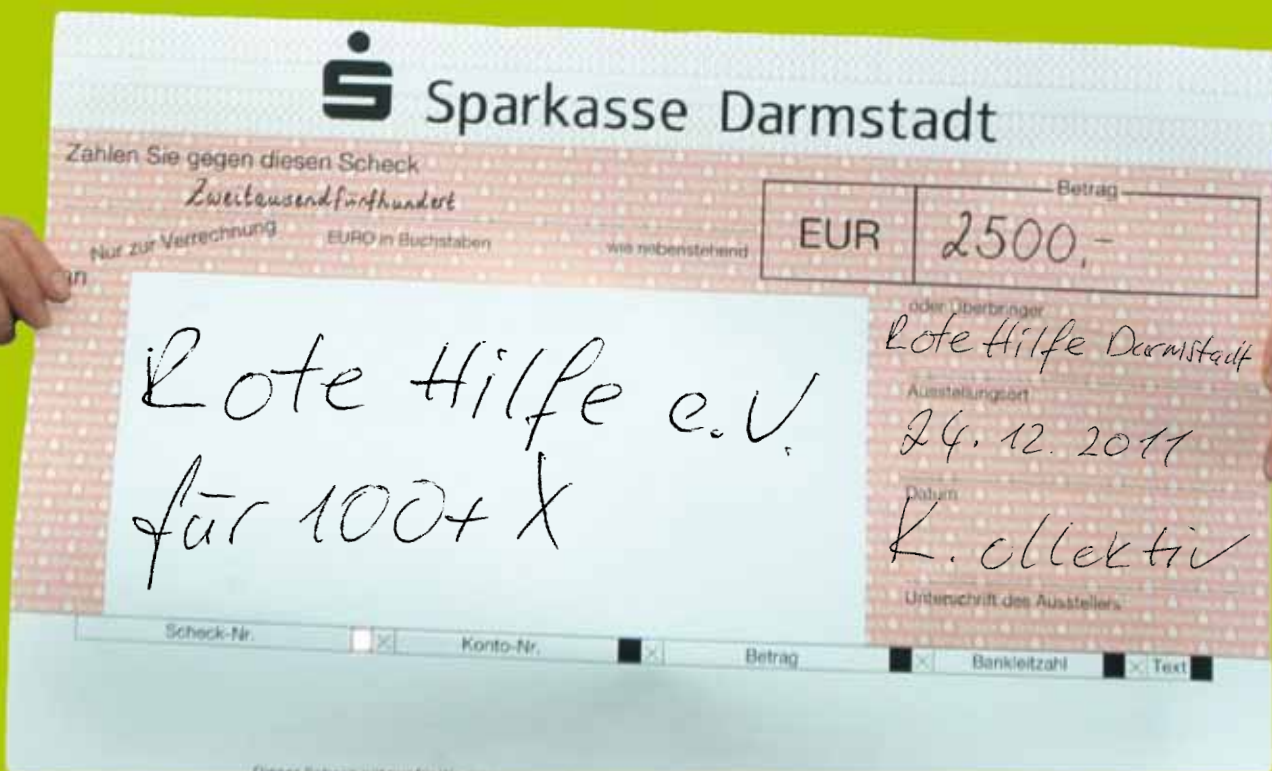 Sparkasse Darmstadt
Zahlen Sie gegen diesen Scheck
Zweitausendfünfhundert
Nur zur Verrechnung EURO in Buchstaben wie nebenstehend
EUR
Betrag
2500,-
an
Rote Hilfe e.V.
für 100+ X
oder Überbringer
Rote Hilfe Darmstadt
Ausstellungsort
24.12.2011
Datum
K. ollektiv
Unterschrift des Ausstellers
Scheck-Nr. Konto-Nr. Betrag Bankleitzahl Text